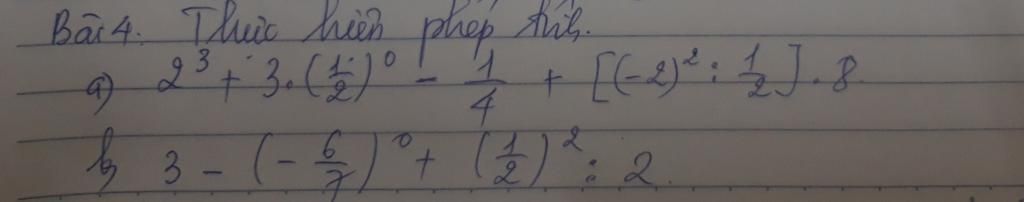 Bài 4. Thực hiện phép tính.
a) 2³ + 3.(1/2)⁰ - 1/4 + [(-2)² : 1/2] . 8
b) 3 - (-6/7)⁰ + (1/2)² : 2